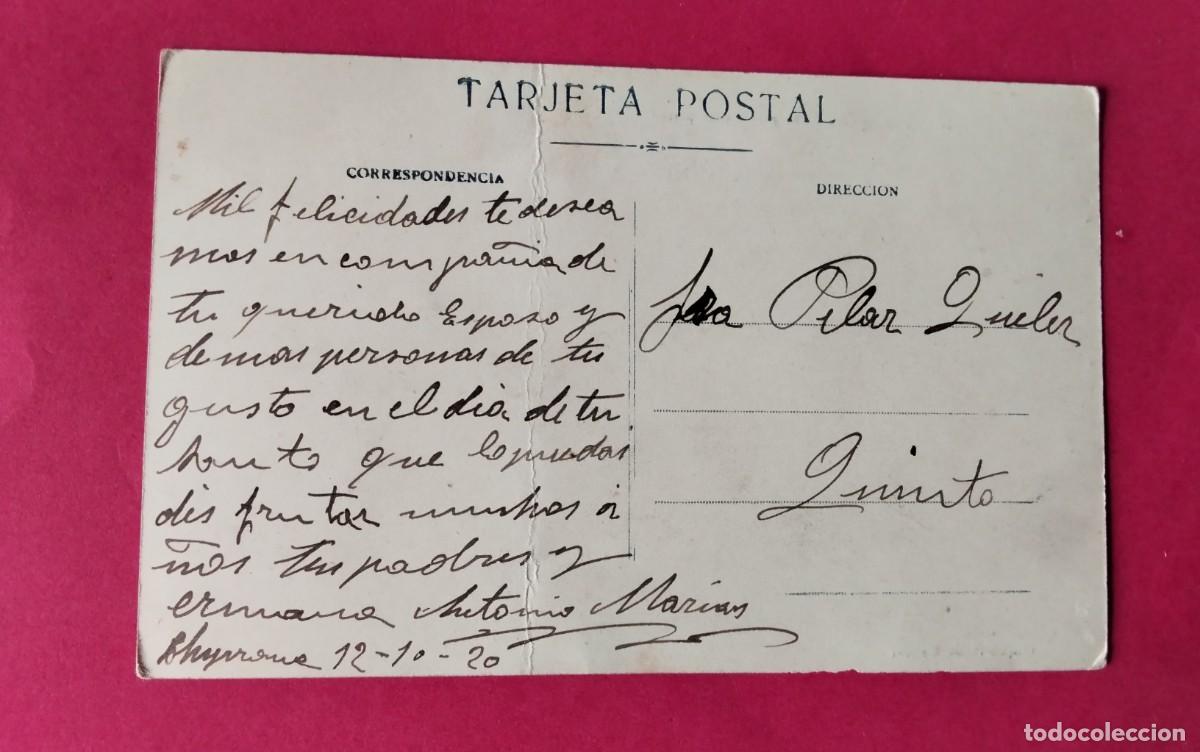 TARJETA POSTAL
CORRESPONDENCIA
Mil felicidades te desea
mos en compañia de
tu querido Esposo y
demas personas de tu
gusto en el dia de tu
santo que lo puedas
disfrutar muchos a
ños tus padres y
ermana Antonio Marias
12-10-20
DIRECCION
Sra Pilar
Quinto
todocoleccion